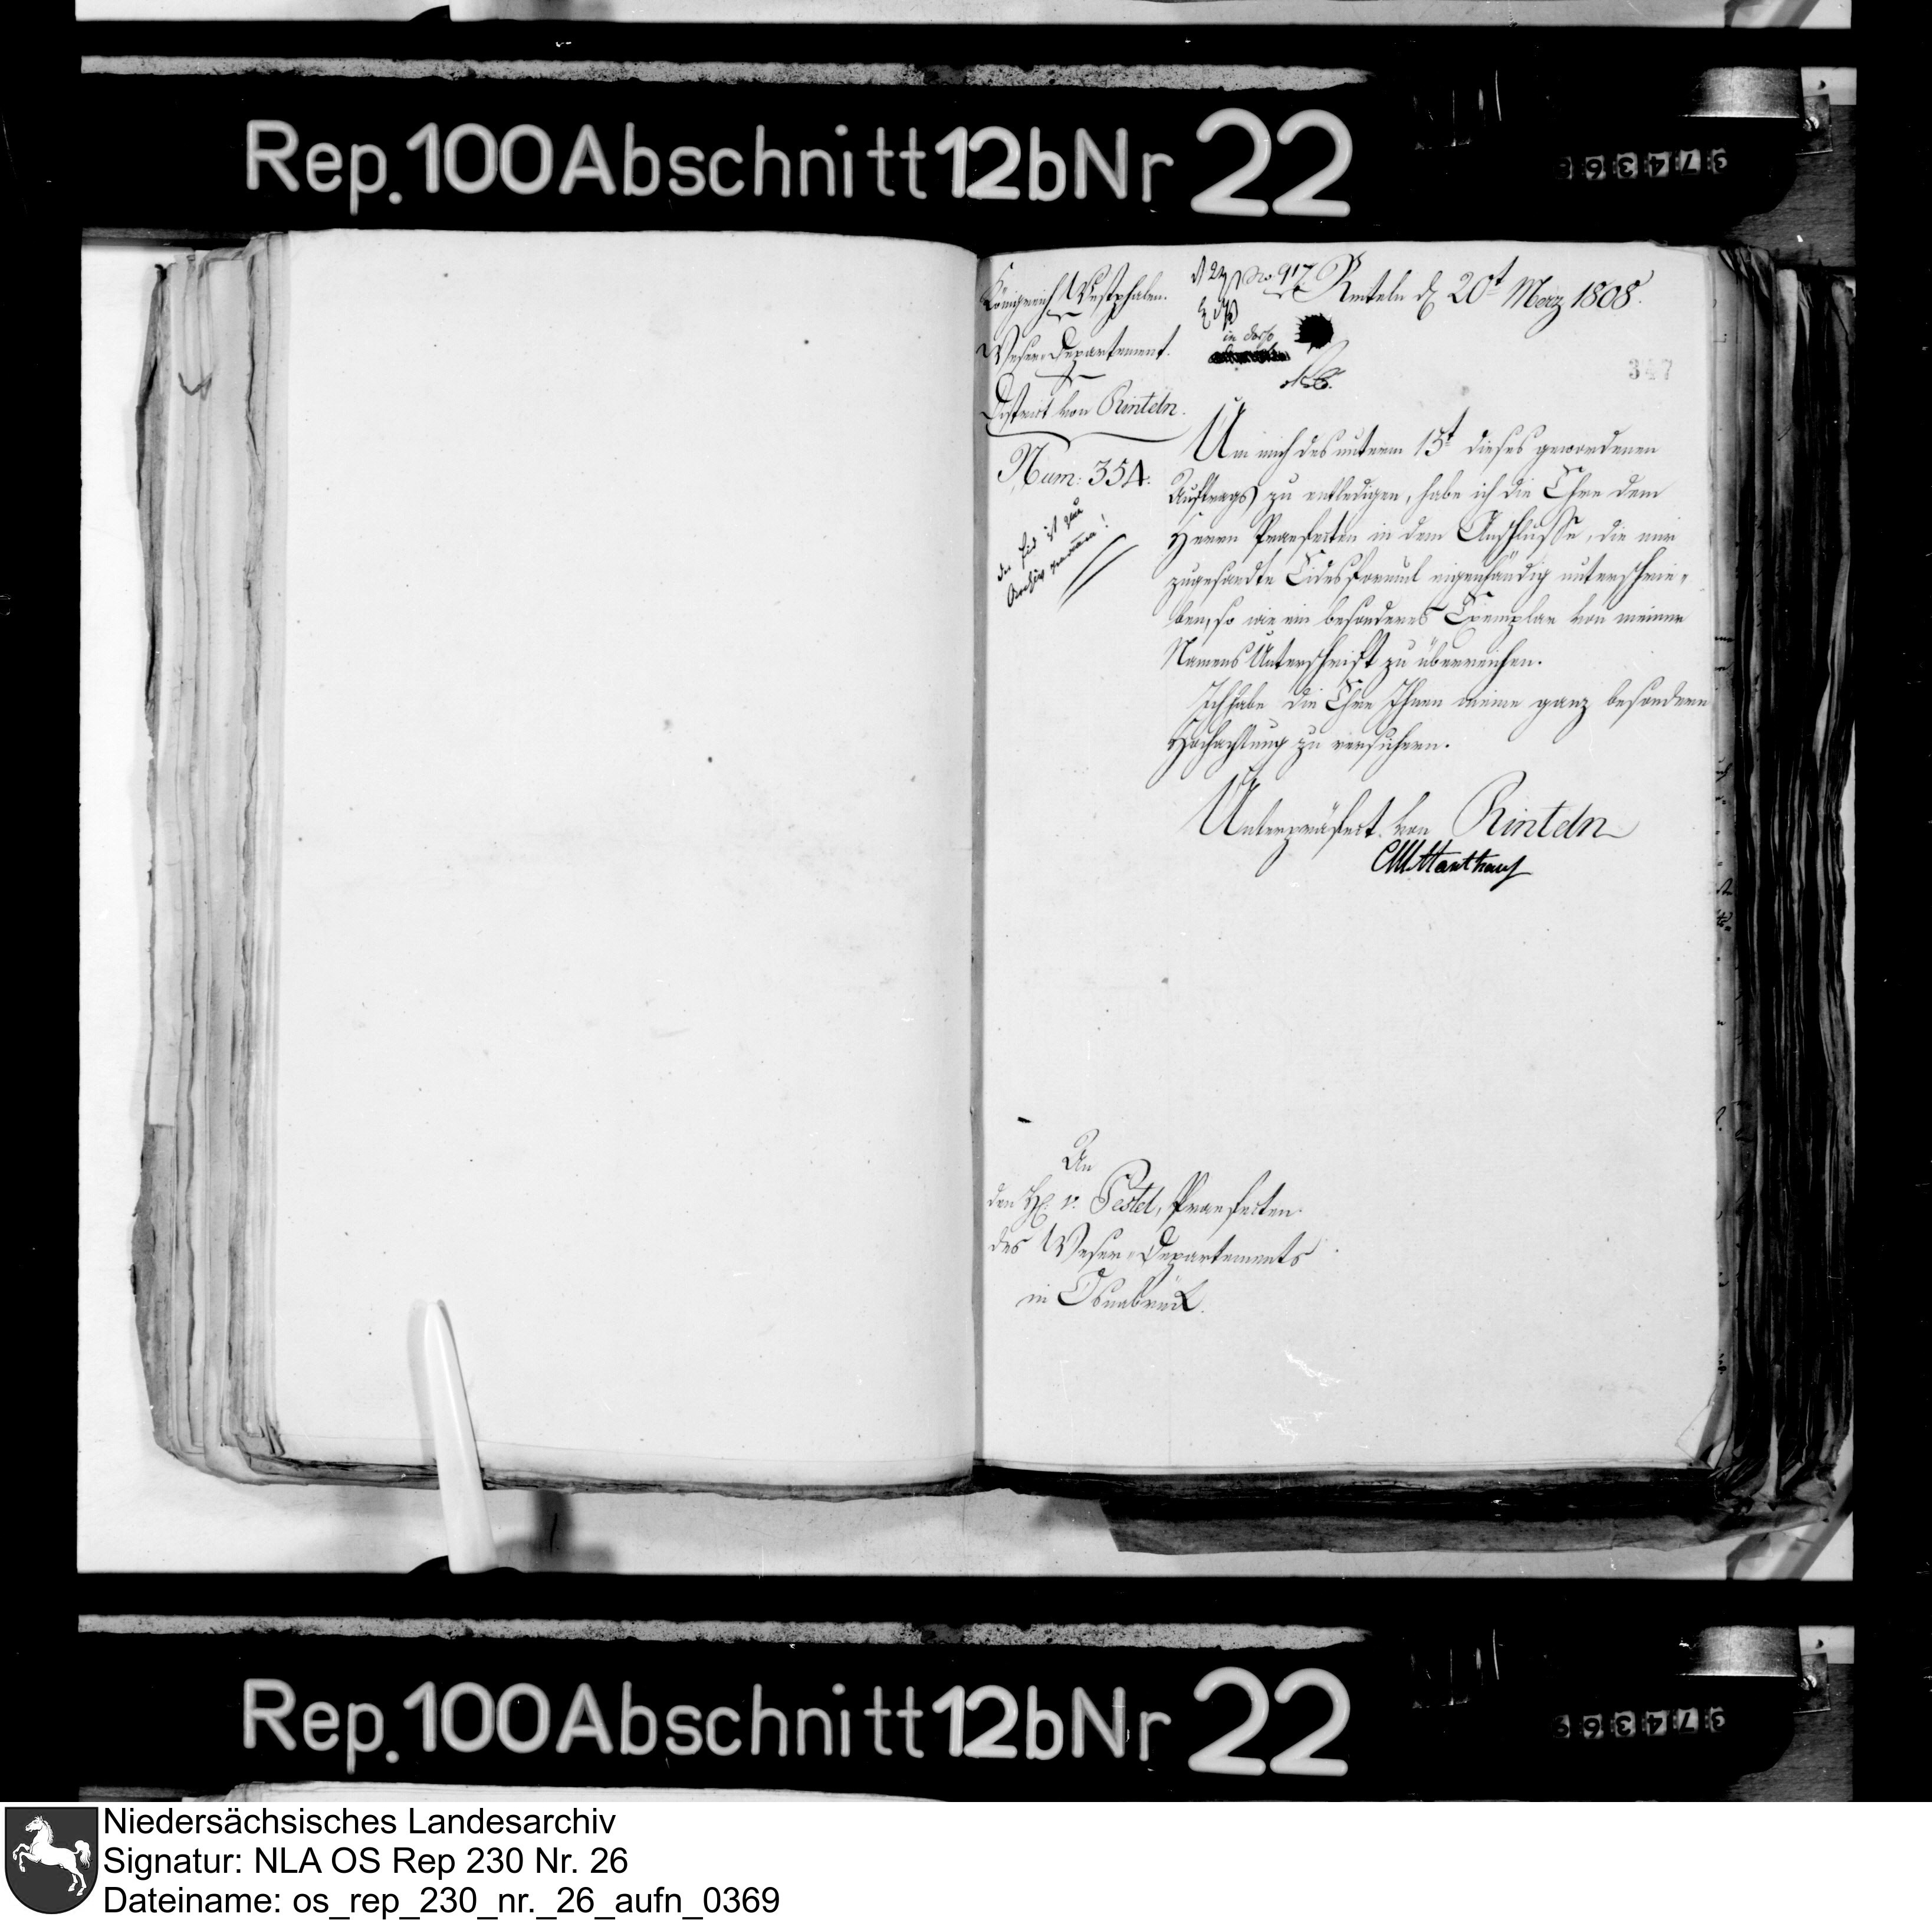 Rep. 100 Abschnitt 12b Nr 22
Königreich Westphalen.
Weser-Departement.
District von Rinteln.
Num: 354.
der Eid ist zum
No 917
Rinteln d 20t Merz 1808.
347
Um mich des unterm 15t dieses gewordenen
Auftrags zu entledigen, habe ich die Ehre dem
Herrn Praefecten in dem Anschlusse, die mir
zugesandte Eidesformul eigenhändig unterschrie-
ben, so wie ein besonderes Exemplar von meiner
Namens Unterschrift zu überreichen.
Ich habe die Ehre Ihnen meine ganz besondere
Hochachtung zu versichern.
Unterpräfect von Rinteln
An
den H. v. Pestel, Praefecten
des Weser-Departements
in Osnabrück.
Rep. 100 Abschnitt 12b Nr 22
Niedersächsisches Landesarchiv
Signatur: NLA OS Rep 230 Nr. 26
Dateiname: os_rep_230_nr._26_aufn_0369